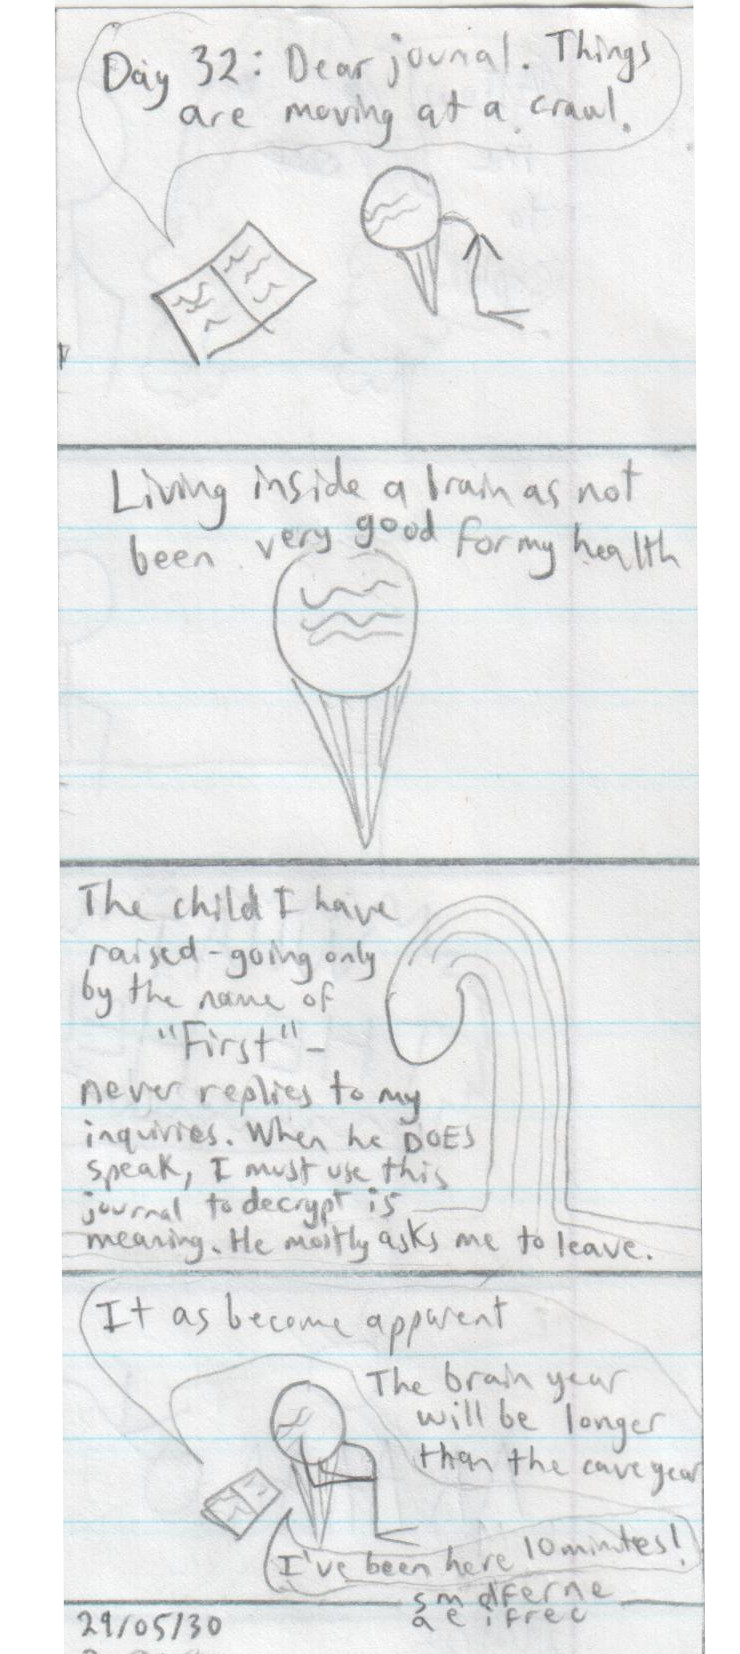 Day 32: Dear journal. Things
are moving at a crawl.
Living inside a brain as not
been very good for my health
The child I have
raised-going only
by the name of
"First"-
never replies to my
inquiries. When he DOES
speak, I must use this
journal to decrypt is
meaning. He mostly asks me to leave.
It as become apparent
The brain year
will be longer
than the cave year
I've been here 10 minutes!
29/05/30